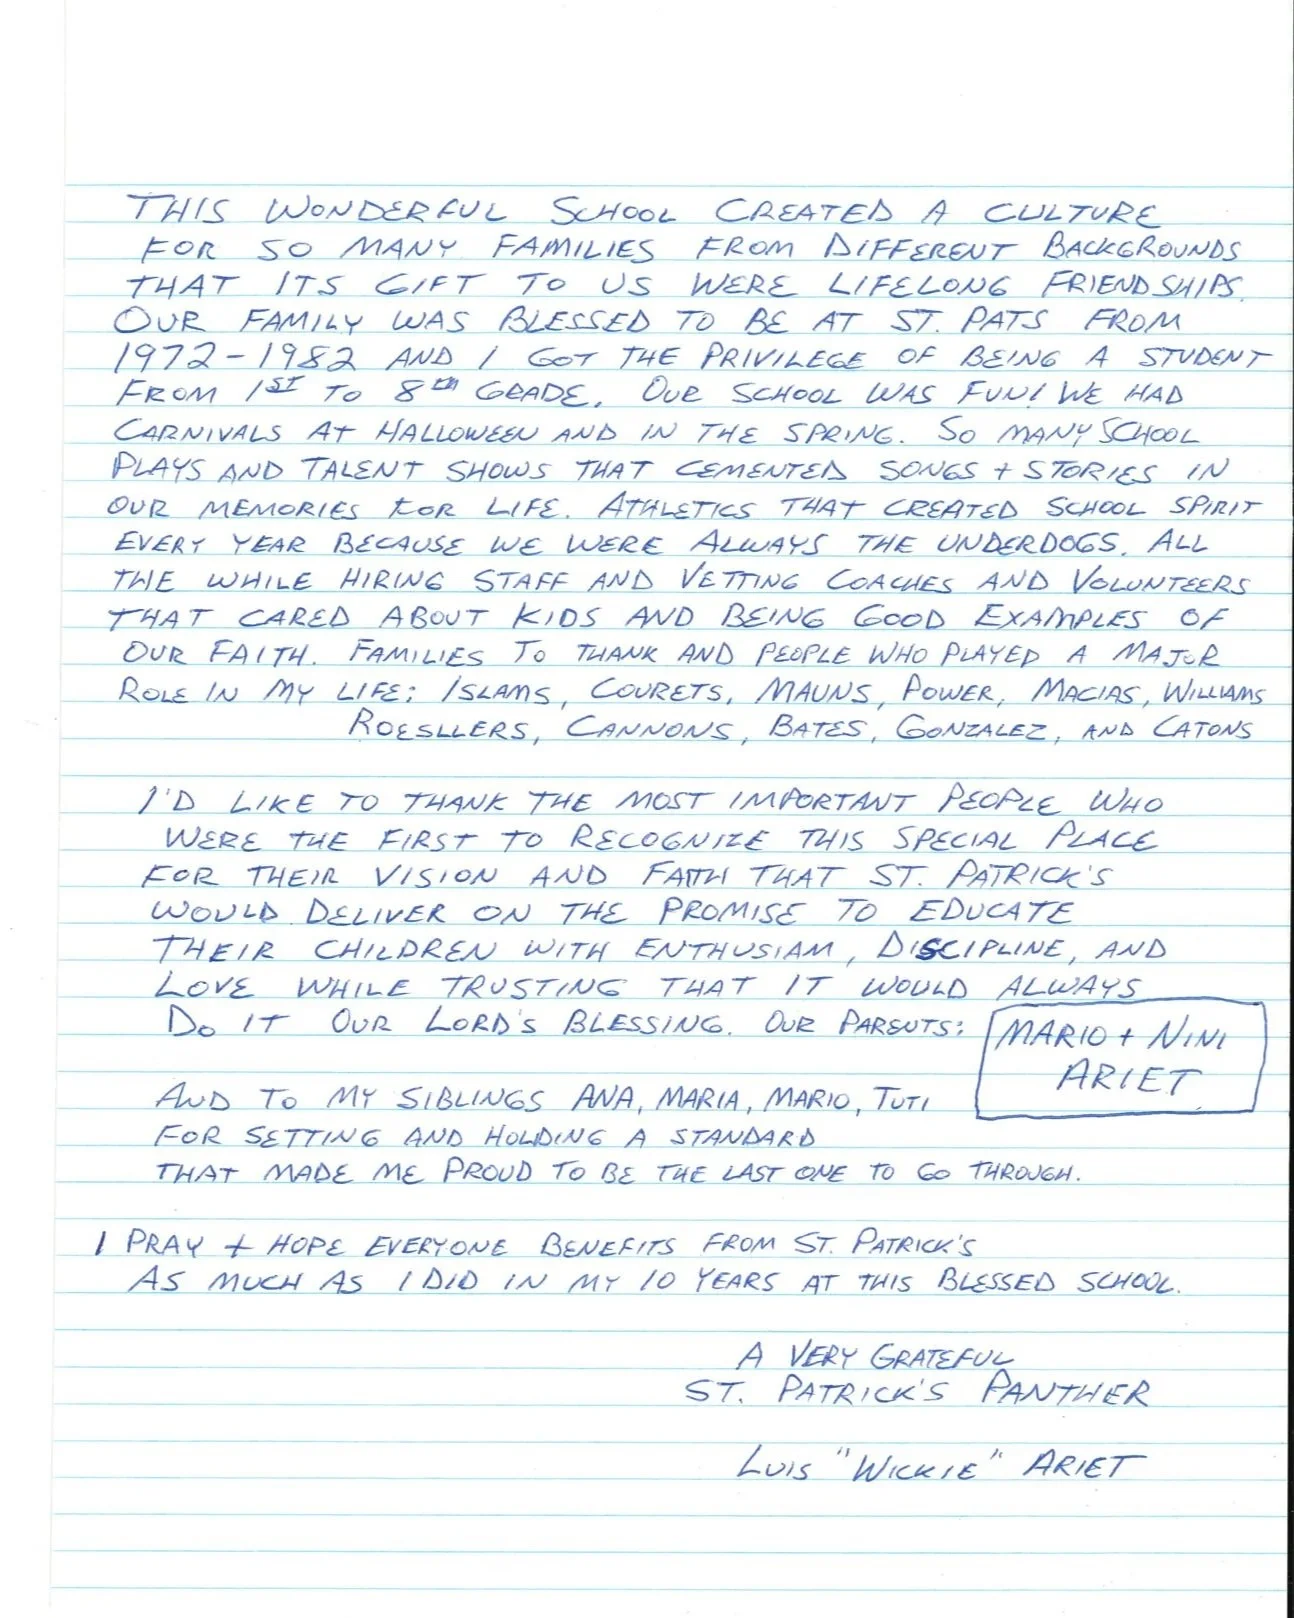 THIS WONDERFUL SCHOOL CREATED A CULTURE
FOR SO MANY FAMILIES FROM DIFFERENT BACKGROUNDS
THAT ITS GIFT TO US WERE LIFELONG FRIENDSHIPS.
OUR FAMILY WAS BLESSED TO BE AT ST. PATS FROM
1972-1982 AND I GOT THE PRIVILEGE OF BEING A STUDENT
FROM 1ST TO 8TH GRADE. OUR SCHOOL WAS FUN! WE HAD
CARNIVALS AT HALLOWEEN AND IN THE SPRING. SO MANY SCHOOL
PLAYS AND TALENT SHOWS THAT CEMENTED SONGS + STORIES IN
OUR MEMORIES FOR LIFE. ATHLETICS THAT CREATED SCHOOL SPIRIT
EVERY YEAR BECAUSE WE WERE ALWAYS THE UNDERDOGS. ALL
THE WHILE HIRING STAFF AND VETTING COACHES AND VOLUNTEERS
THAT CARED ABOUT KIDS AND BEING GOOD EXAMPLES OF
OUR FAITH. FAMILIES TO THANK AND PEOPLE WHO PLAYED A MAJOR
ROLE IN MY LIFE: ISLAMS, COURETS, MAUNS, POWER, MACIAS, WILLIAMS
ROESLLERS, CANNONS, BATES, GONZALEZ, AND CATONS
I'D LIKE TO THANK THE MOST IMPORTANT PEOPLE WHO
WERE THE FIRST TO RECOGNIZE THIS SPECIAL PLACE
FOR THEIR VISION AND FAITH THAT ST. PATRICK'S
WOULD DELIVER ON THE PROMISE TO EDUCATE
THEIR CHILDREN WITH ENTHUSIAM, DISCIPLINE, AND
LOVE WHILE TRUSTING THAT IT WOULD ALWAYS
DO IT OUR LORD'S BLESSING. OUR PARENTS: MARIO + NINI
ARIET
AND TO MY SIBLINGS ANA, MARIA, MARIO, TUTI
FOR SETTING AND HOLDING A STANDARD
THAT MADE ME PROUD TO BE THE LAST ONE TO GO THROUGH.
I PRAY + HOPE EVERYONE BENEFITS FROM ST. PATRICK'S
AS MUCH AS I DID IN MY 10 YEARS AT THIS BLESSED SCHOOL.
A VERY GRATEFUL
ST. PATRICK'S PANTHER
LUIS "WICKIE" ARIET